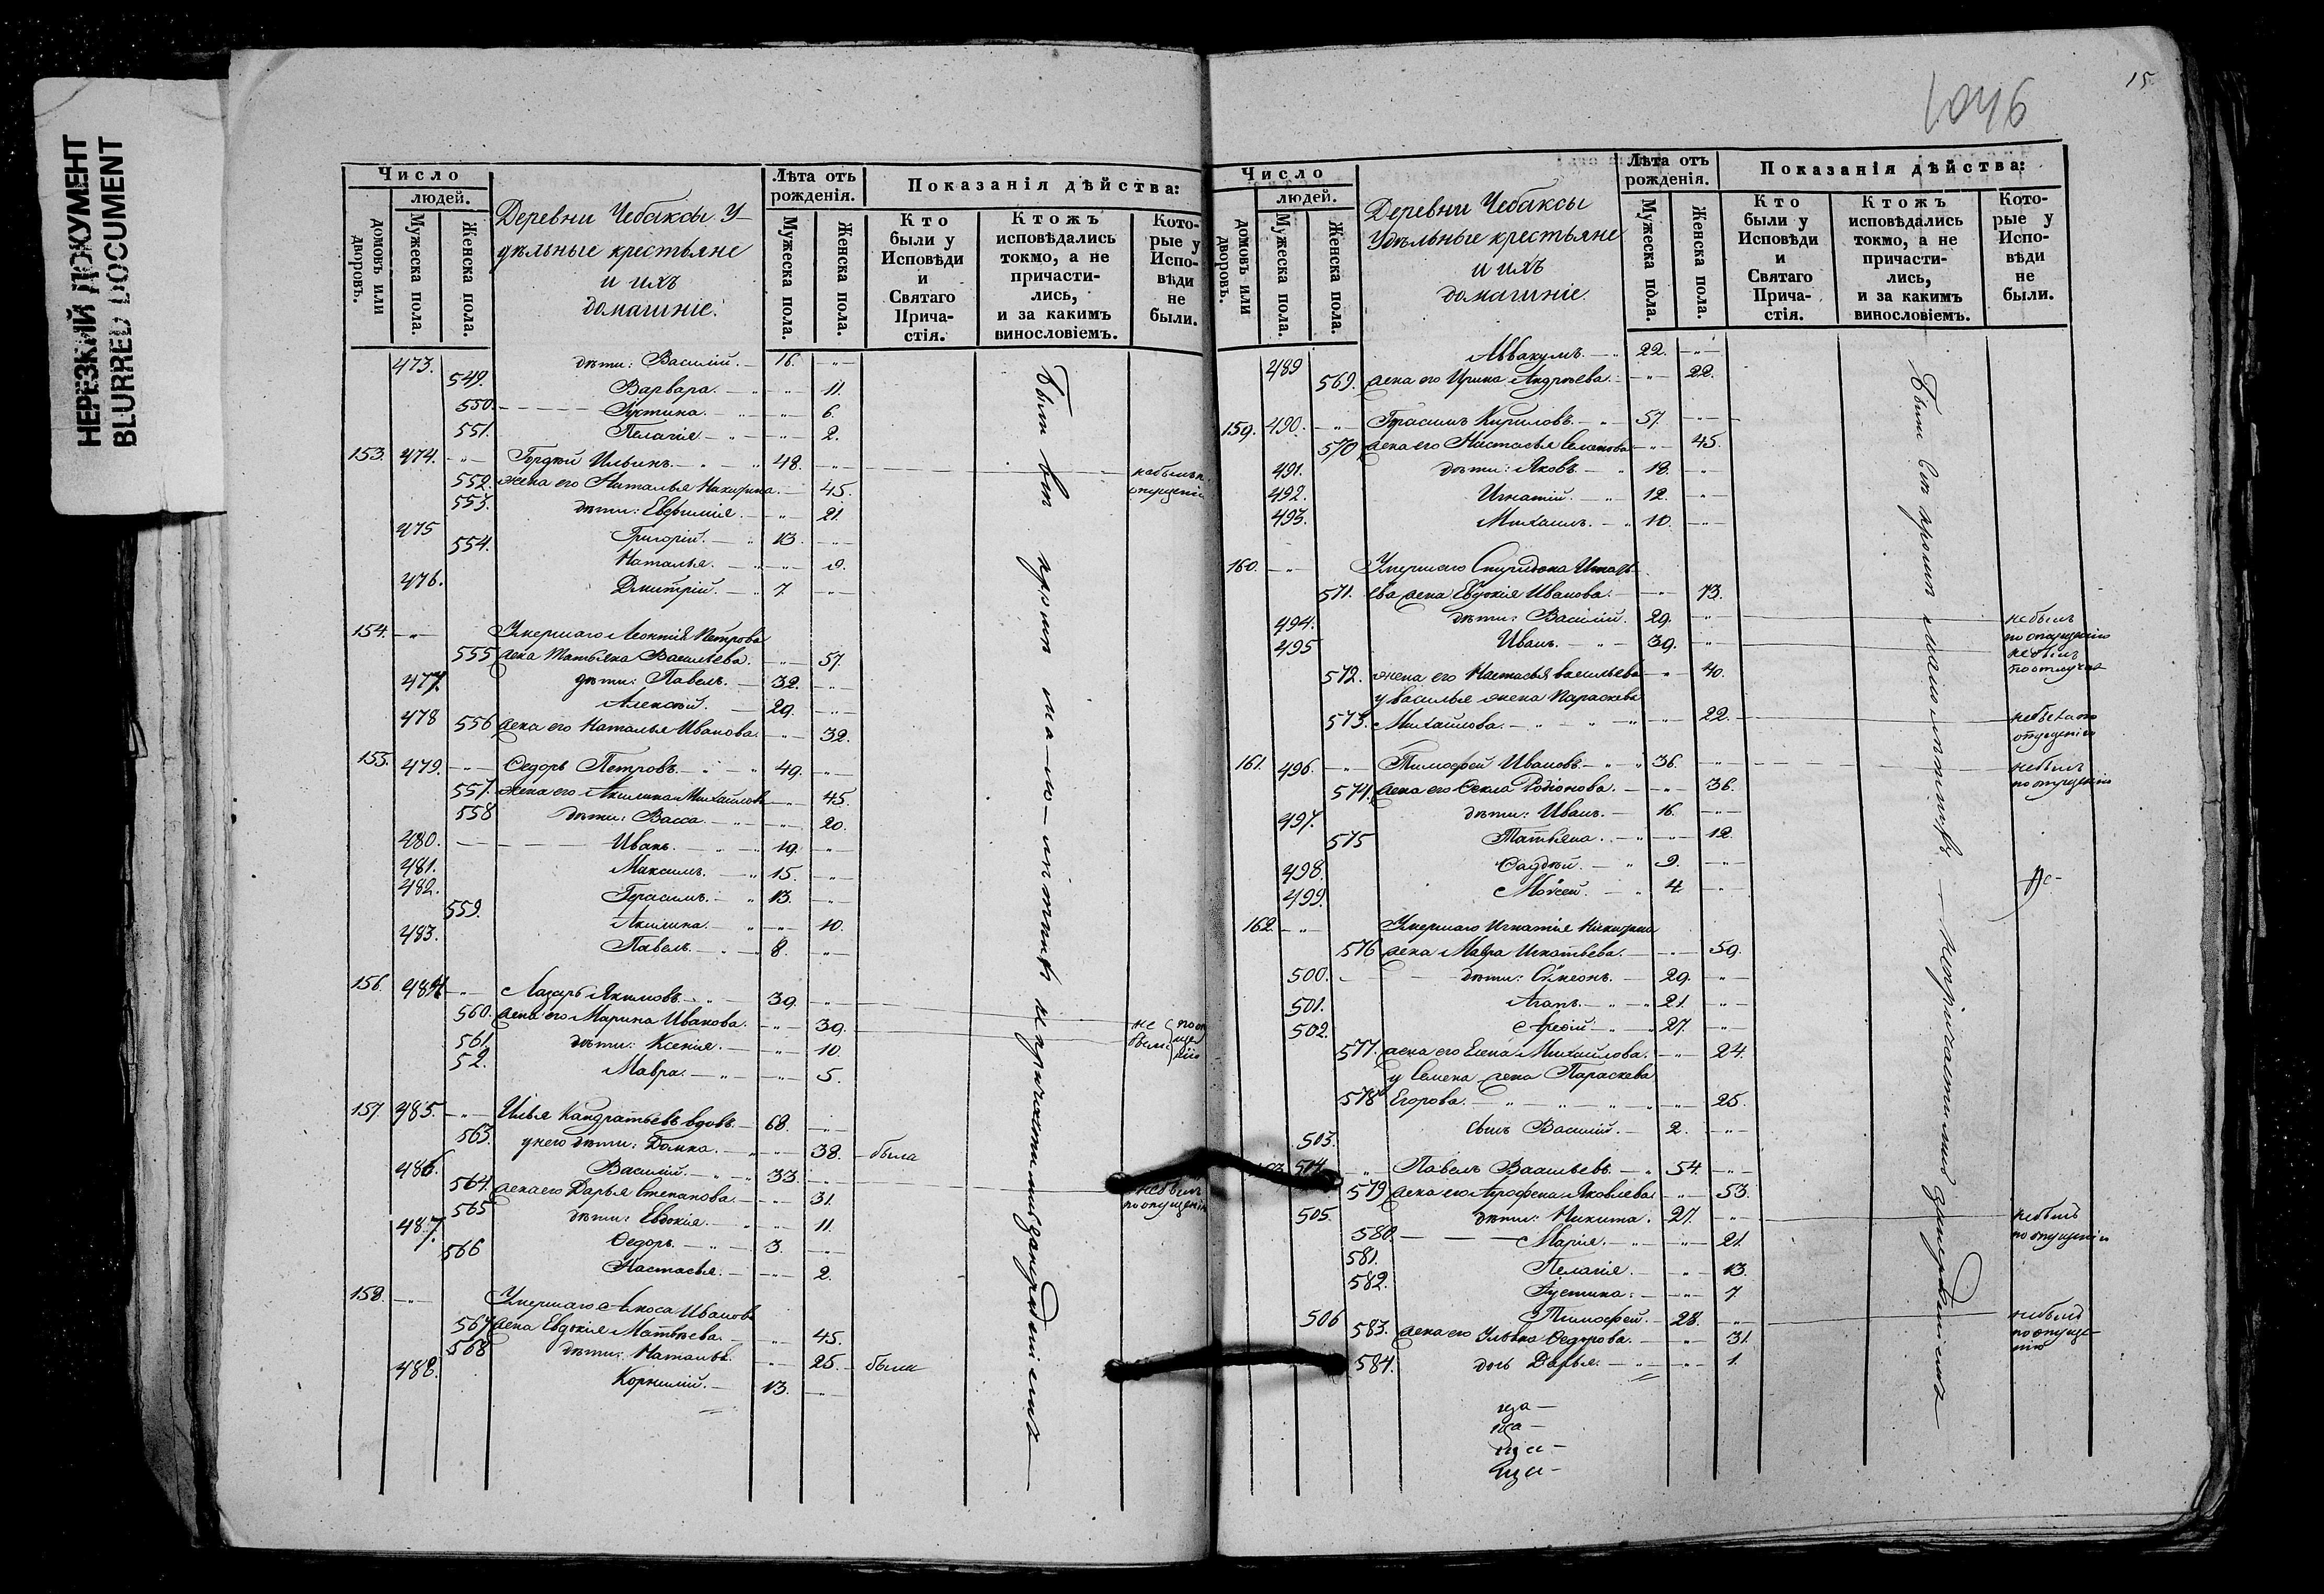 НЕРЕЗКИЙ ДОКУМЕНТ
BLURRED DOCUMENT
Число
людей.
домовъ или дворовъ.
Мужеска пола.
Женска пола.
Деревни Чебаксы У-
дѣльные крестьяне
и ихъ
домашніе.
Лѣта отъ рожденія.
Мужеска пола.
Женска пола.
Показанія дѣйства:
Кто были у Исповѣди и Святаго Прича-стія.
Ктожъ исповѣдались токмо, а не причасти-лись, и за какимъ винословіемъ.
Кото-рые у Испо-вѣди не были.
473. дѣти: Василій. 16.
549. Варвара. 11.
550. Густина. 6.
551. Пелагія 2.
153. 474. Гордѣй Ильинъ. 48.
552. жена его Наталья Никитина. 45.
553. дѣти: Евфимія. 21.
475 Григорій. 13.
554. Наталья. 9.
476. Дмитрій. 7.
154. Умершаго Леонтія Петрова
555 жена Татьяна Васильева. 51.
477. дѣти: Павелъ. 32.
478 Алексѣй. 29.
556 жена его Наталья Иванова. 32.
155. 479. Ѳедоръ Петровъ. 49.
557. жена его Акилина Михайлова 45.
558 дѣти: Васса. 20.
480. Иванъ. 19.
481. Максимъ. 15.
482. Герасимъ. 13.
559. Акилина. 10.
483. Павелъ. 8.
156. 484 Лазарь Якимовъ. 39.
560. жена его Марина Иванова. 39.
561 дѣти: Ксенія. 10.
52. Мавра. 5.
157 485. Илья Кандратьевъ вдовъ. 68.
563. у него дѣти: Домна. 38. была
486. Василій. 33.
564. жена его Дарья Степанова. 31.
не былъ
по опущенію
565 дѣти: Евдокія. 11.
487. Ѳедоръ. 3.
566 Настасья. 2.
158. Умершаго Амоса Иванова
567 жена Евдокія Матвѣева. 45.
568 дѣти: Наталья. 25. была
488. Корнилій. 13.
Были въ
и причастились
1046
15
Число
людей.
домовъ или дворовъ.
Мужеска пола.
Женска пола.
Деревни Чебаксы
Удѣльные крестьяне
и ихъ
домашніе.
Лѣта отъ рожденія.
Мужеска пола.
Женска пола.
Показанія дѣйства:
Кто были у Исповѣди и Святаго Прича-стія.
Ктожъ исповѣдались токмо, а не причасти-лись, и за какимъ винословіемъ.
Кото-рые у Испо-вѣди не были.
489 Аввакумъ. 22.
569. жена его Ирина Андреева. 22.
159. 490. Герасимъ Кириловъ. 51.
570 жена его Настасья 45.
491. дѣти: Яковъ. 18.
492. Игнатій. 12.
493. Михаилъ. 10.
160. Умершаго Спиридона Игнать-
571. ева жена Евдокія Иванова. 73.
494. дѣти: Василій. 29. не былъ
по опущенію
495 Иванъ. 39. не былъ
по отлучкѣ
572. жена его Настасья Васильева 40.
у Василья жена Параскева
573. Михайлова. 22.
опущенію
161. 496. Тимоѳей Ивановъ. 36. не былъ
по опущенію
574. жена его Ѳекла Родіонова. 36.
497. дѣти: Иванъ. 16.
575 Татьяна. 12.
498. Ѳаддѣй. 9.
499. Моѵсей. 4
162. Умершаго Игнатія Никитина
576 жена Мавра Игнатьева. 59.
500. дѣти: Сѵмеонъ. 29.
501. Агапъ. 21.
502. 27.
577. жена его Елена Михайлова. 24.
у Семена жена Параскева
578 Егорова. 25.
503. сынъ Василій. 2.
504. Павелъ Васильевъ. 54.
579 жена его Аграфена Яковлева 53.
505. дѣти: Никита. 27. не былъ
по опущенію
580. Марія. 21
581. Пелагія. 13.
582. Густина. 7
506 Тимоѳей. 28. не былъ
по опуще-
нію
583. жена его Ульяна Ѳедорова. 31.
584. дочь Дарья. 1.
Были въ